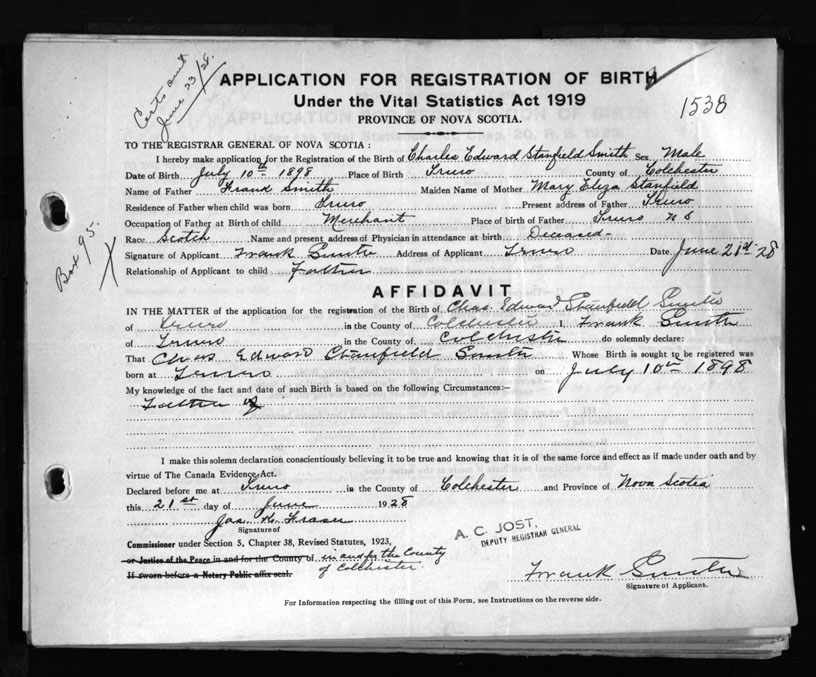 Certs sent
June 23/28.
APPLICATION FOR REGISTRATION OF BIRTH
Under the Vital Statistics Act 1919
PROVINCE OF NOVA SCOTIA.
1538
TO THE REGISTRAR GENERAL OF NOVA SCOTIA :
I hereby make application for the Registration of the Birth of Charles Edward Stanfield Smith Sex Male
Date of Birth July 10th 1898 Place of Birth Truro County of Colchester
Name of Father Frank Smith Maiden Name of Mother Mary Eliza Stanfield
Residence of Father when child was born Truro Present address of Father Truro
Occupation of Father at Birth of child Merchant Place of birth of Father Truro N S
Race Scotch Name and present address of Physician in attendance at birth Deceased-
Signature of Applicant Frank Smith Address of Applicant Truro Date June 21st 28
Relationship of Applicant to child Father
Box 95.
AFFIDAVIT
IN THE MATTER of the application for the registration of the Birth of Chas Edward Stanfield Smith
of Truro in the County of Colchester I, Frank Smith
of Truro in the County of Colchester do solemnly declare:
That Chas Edward Stanfield Smith Whose Birth is sought to be registered was
born at Truro on July 10th 1898
My knowledge of the fact and date of such Birth is based on the following Circumstances:—
Father of
I make this solemn declaration conscientiously believing it to be true and knowing that it is of the same force and effect as if made under oath and by
virtue of The Canada Evidence Act.
Declared before me at Truro in the County of Colchester and Province of Nova Scotia
this 21st day of June 1928
Jas. K. Fraser
Signature of
A. C. JOST,
DEPUTY REGISTRAR GENERAL
Commissioner under Section 5, Chapter 38, Revised Statutes, 1923,
or Justice of the Peace in and for the County of in and for the County
If sworn before a Notary Public affix seal. of Colchester.
Frank Smith
Signature of Applicant.
For Information respecting the filling out of this Form, see Instructions on the reverse side.